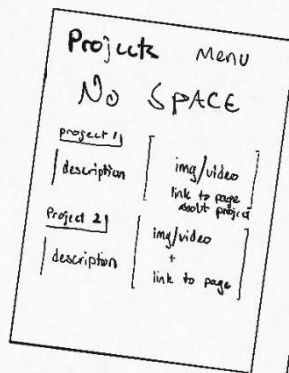 Projects Menu
No SPACE
project 1
description
img/video
link to page
about project
Project 2
description
img/video
+
link to page